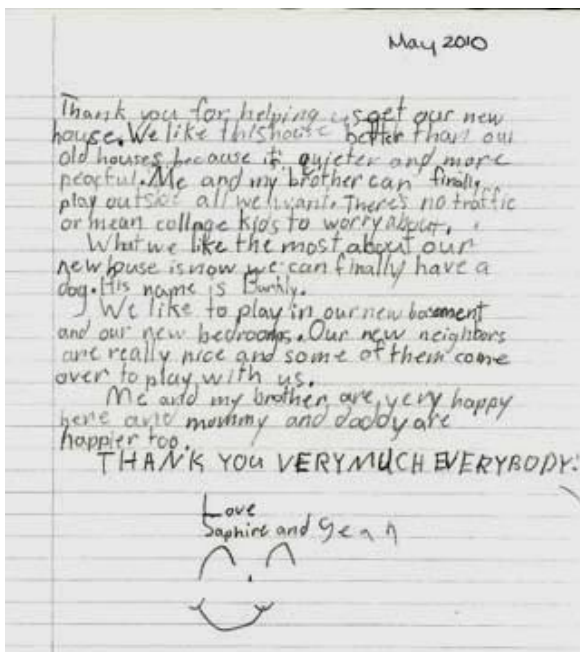 May 2010
Thank you for helping us get our new
house. We like this house better than our
old houses because it quieter and more
peacful. Me and my brother can finally
play outside all we want. There's no traffic
or mean collage kids to worry about.
What we like the most about our
new house is now we can finally have a
dog. His name is
We like to play in our new basement
and our new bedrooms. Our new neighbors
are really nice and some of them come
over to play with us.
Me and my brother are very happy
here and mommy and daddy are
happier too.
THANK YOU VERY MUCH EVERYBODY!
Love
Saphire and